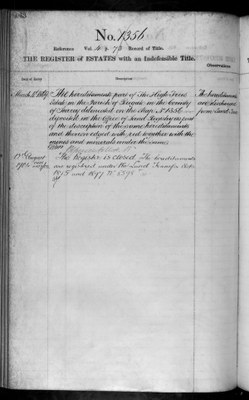 No. 1356
Reference Vol. 6 p. 73 Record of Title.
THE REGISTER of ESTATES with an Indefeasible Title.
Date of Entry
Description
Observations
The hereditaments part of The High Trees
Estate in the Parish of Reigate in the County
of Surrey delineated on the Map No. 1356
deposited in the Office of Land Registry as part
of the description of the same hereditaments
and thereon edged with red together with the
mines and minerals under the same
The hereditaments
are discharged
from Land Tax
The Register is closed. The hereditaments
are registered under the Land Transfer Acts
1875 and 1897